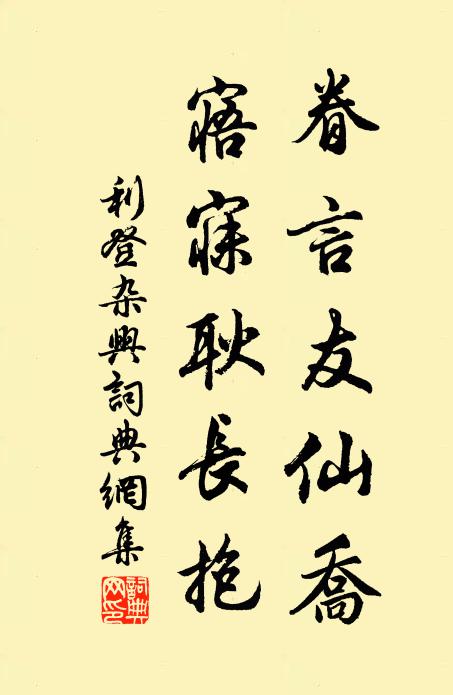 眷言友仙喬
寤寐耿長抱
利登杂興詞典網集
詞典
网印